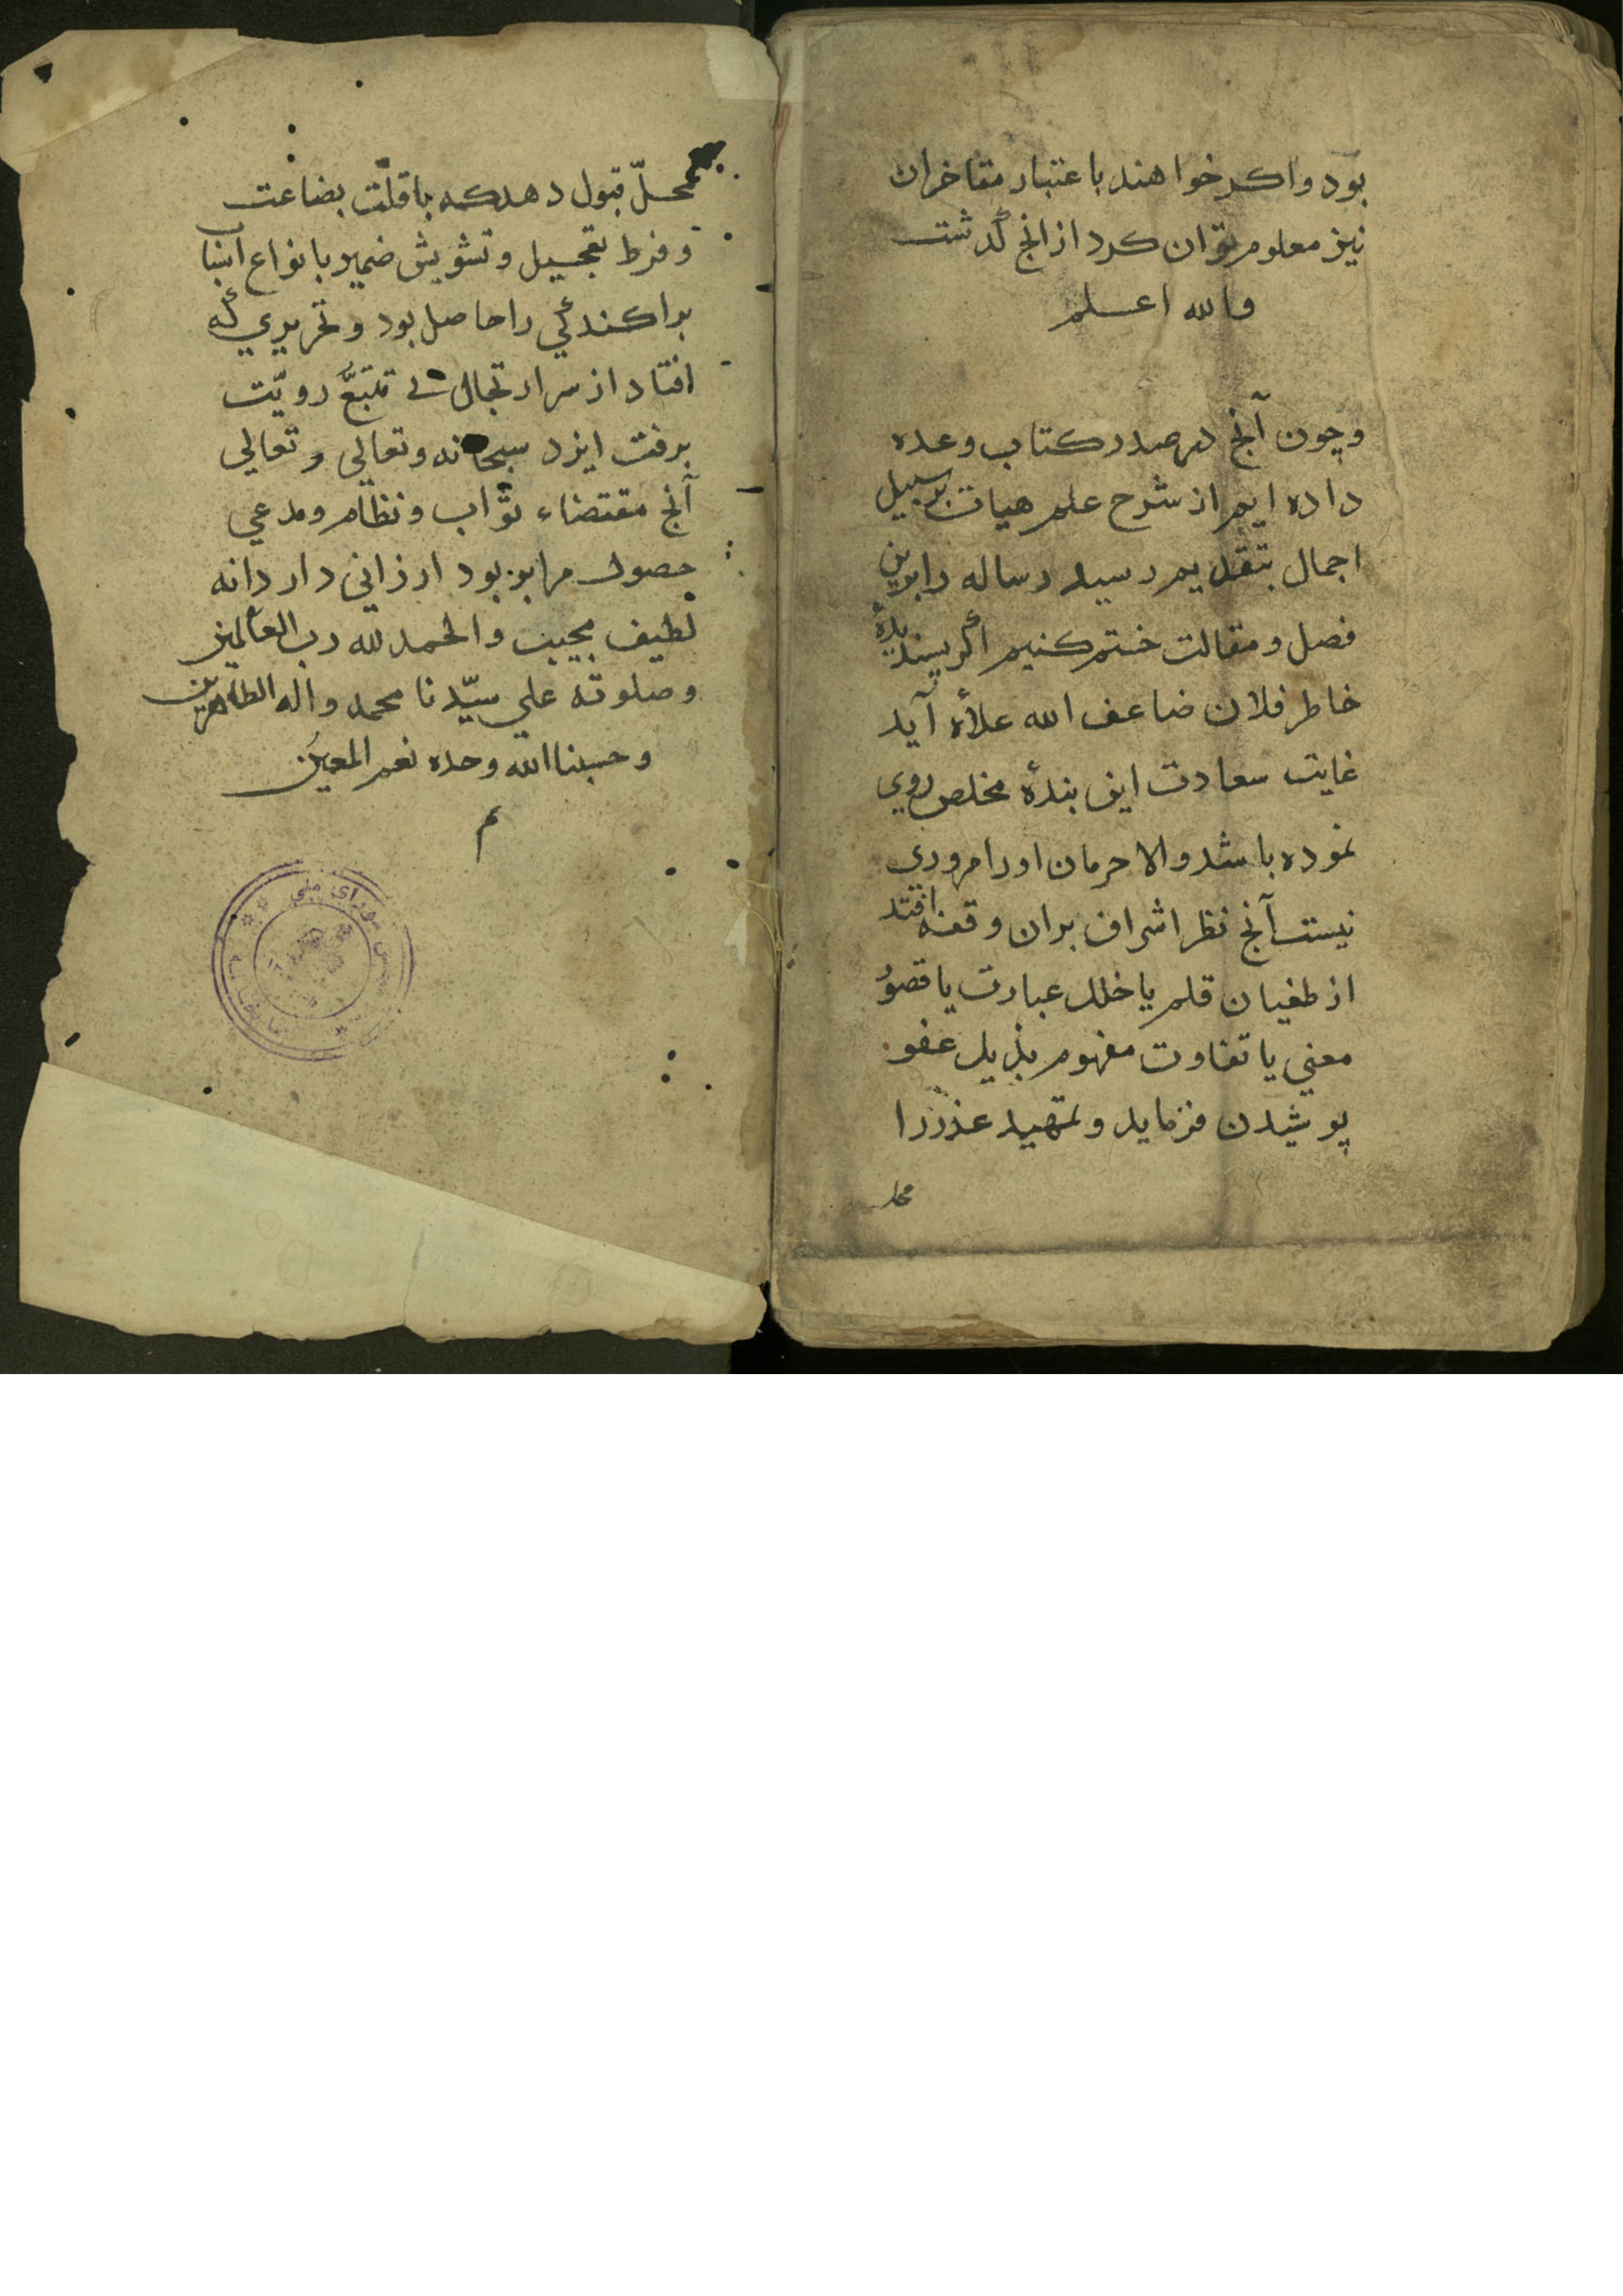 بود واکر خواهند باعتبار مفاخران
نیز معلوم توان کرد از انچ گذشت
والله اعلم
وچون آنچ در صدر کتاب وعده
داده ایم از شرح علم هیات بر سبیل
اجمال بتقدیم رسید رساله را برین
فصل و مقالت ختم کنیم اگر پسندیدهٔ
خاطر فلان ضاعف الله علاٰه آید
غایت سعادت این بندهٔ مخلص روی
نموده باشد والا حرمان اورا مروری
نیست آنچ نظر اشراف بران وقعه افتد
از طغیان قلم یا خلل عبارت یا قصور
معنی یا تفاوت مفهوم بذیل عفو
پوشیدن فرماید و تمهید عذر را
محل
محلّ قبول دهد که با قلّت بضاعت
و فرط تعجیل و تشویش ضمیر بانواع اسباب
براکندگی را حاصل بود و تحریری که
افتاد از سر ارتجال بی تتبّع رویّت
برفت ایزد سبحانه وتعالی و تعالی
آنچ مقتضاء ثواب و نظام ومدعی
حصول بود ارزانی دارد انه
لطیف مجیب والحمد لله رب العالمین
وصلوته علی سیّدنا محمد واله الطاهرین
وحسبنا الله وحده نعم المعین
م
شورای ملی